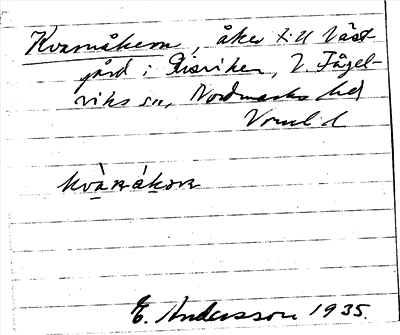 Kvarnåkern, åker till Väst-
gård i Risviken, V. Fågel-
viks sn, Nordmarks hd
Vrml d
kvàrnákorn
E. Andersson 1935.